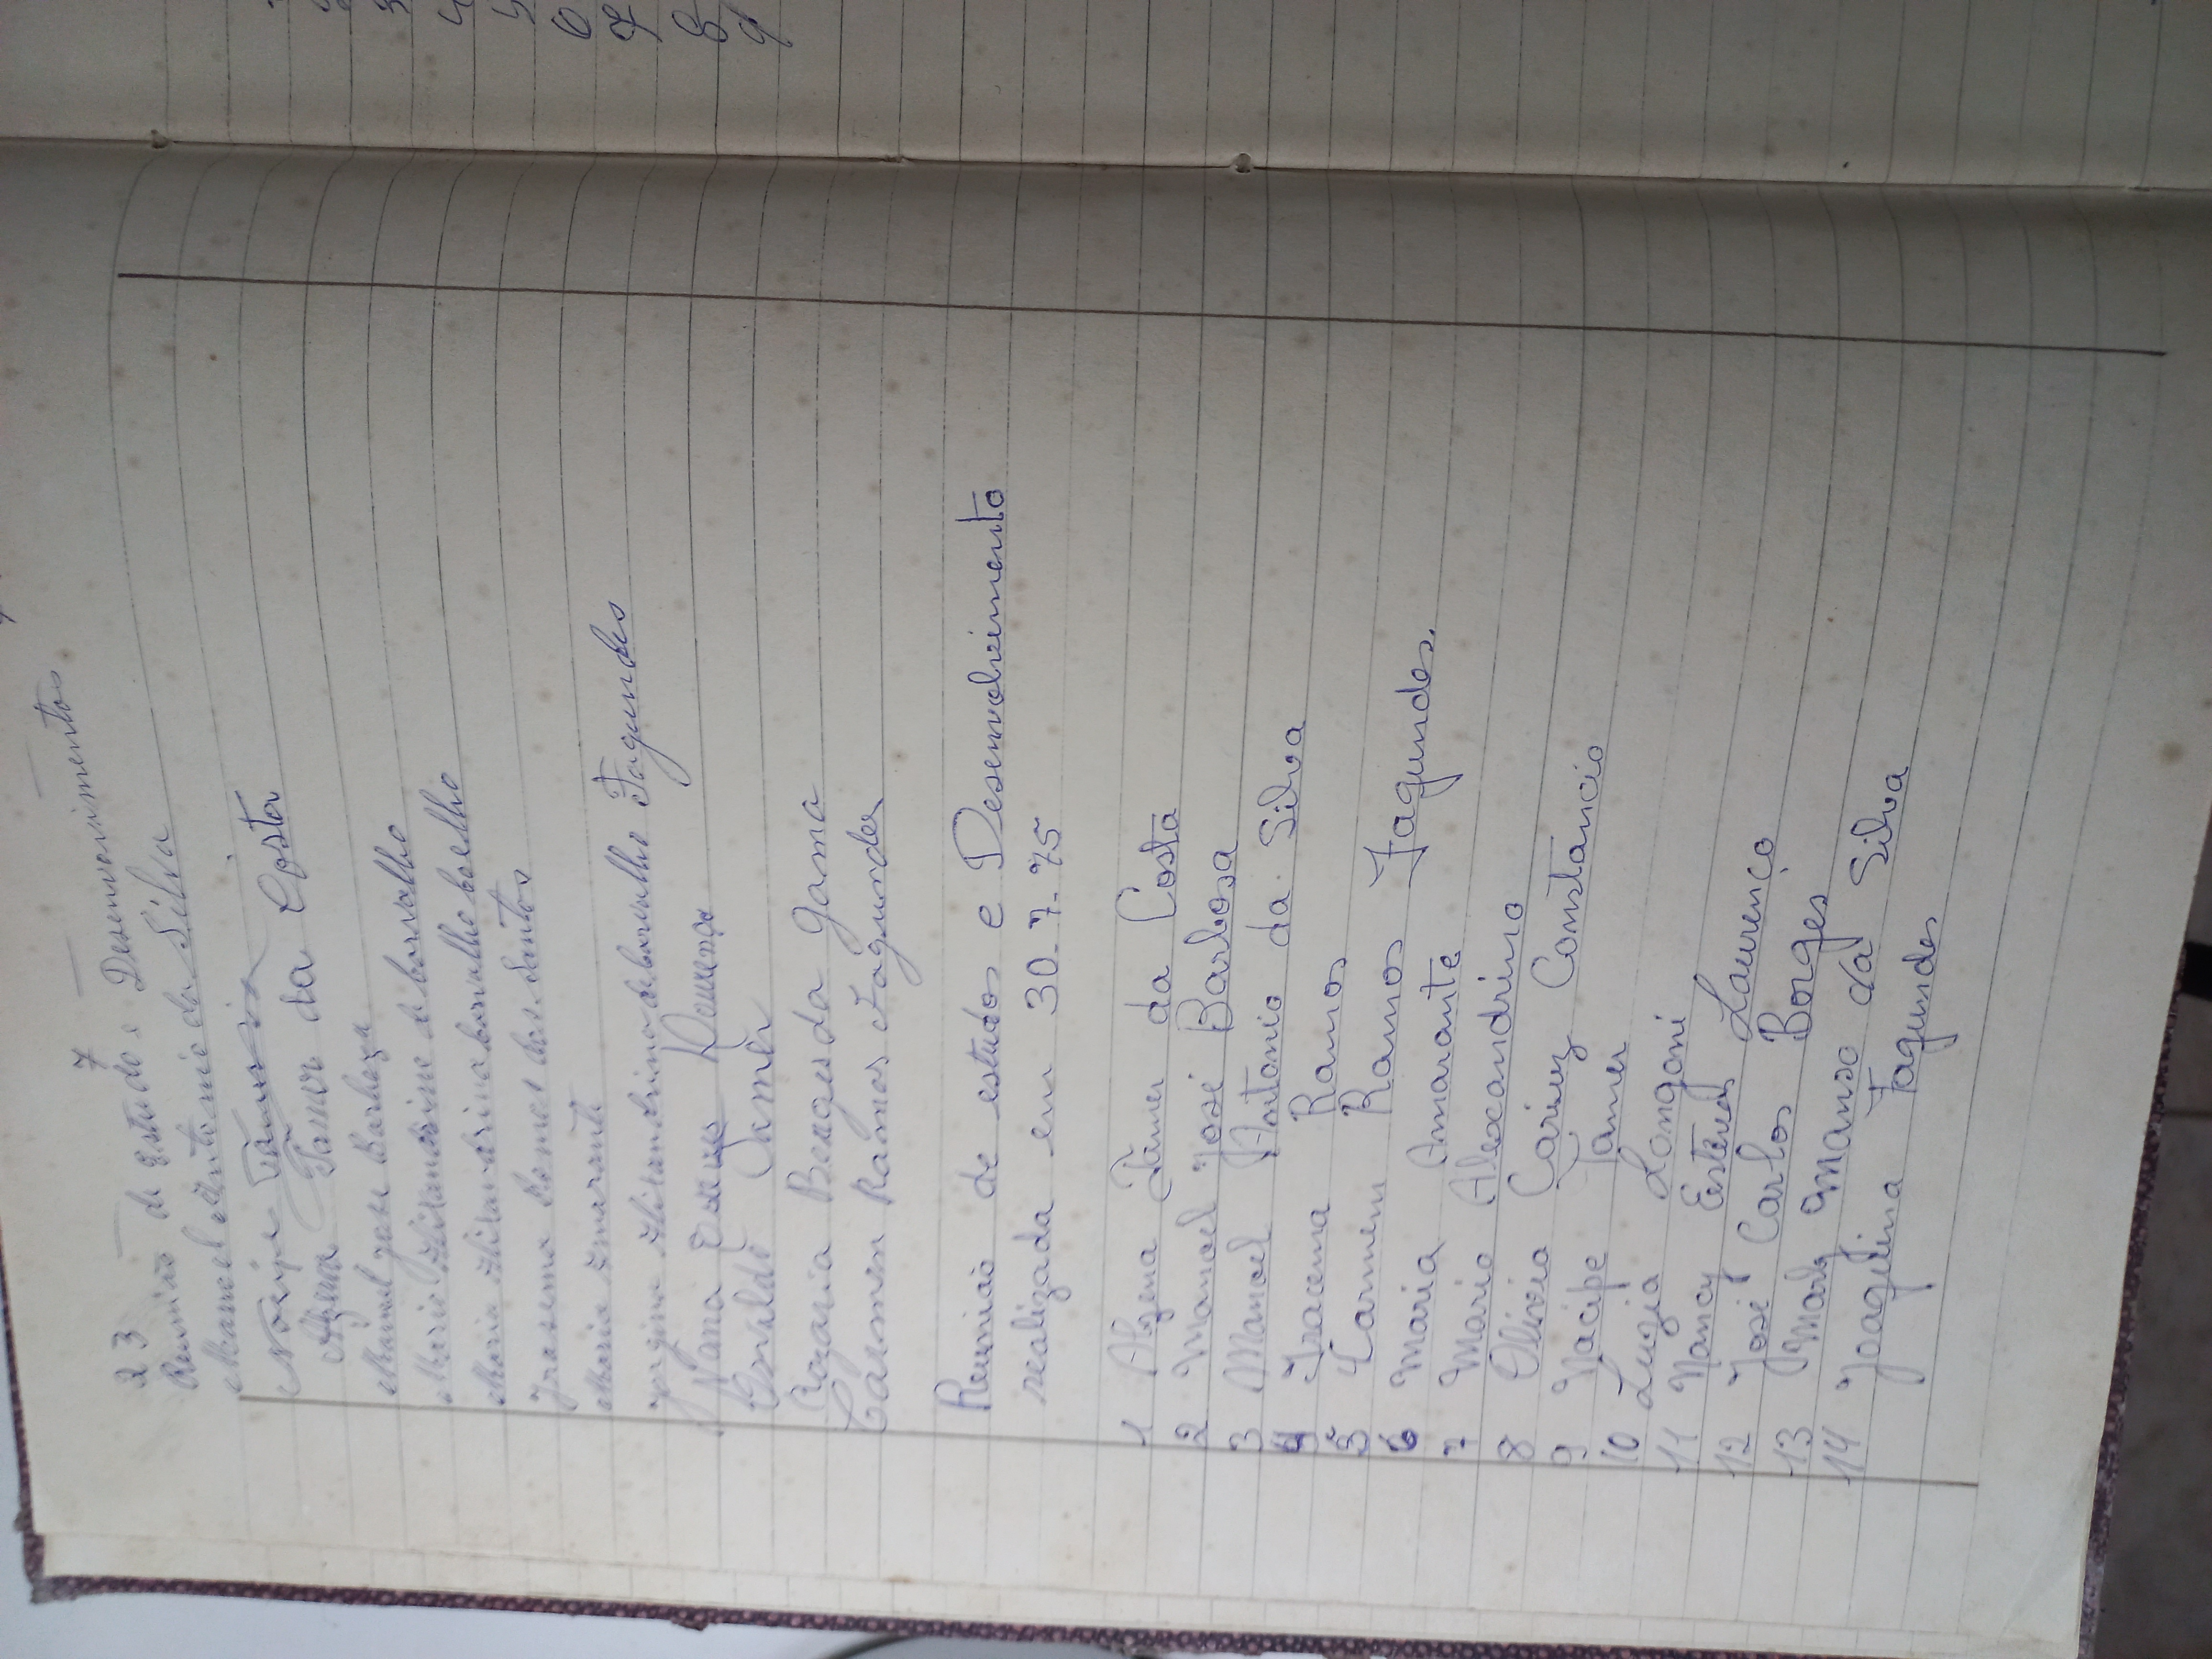 23 7
Reunião de Estudo e Desenvovimentos
Manoel Antonio da Silva
Nacipe Tâmer
Alzena Tamer da Costa
Manoel José Barboza
Mario Alixandrino de Carvalho
Maria Alixandrina Carvalho Coelho
Iracema Ramos dos Santos
Maria Amarante
Jorgina Alixandrina de Carvalho Fagundes
Nana Lourenço
Osvaldo
Rozaria Borges da Gama
Carmen Ramos Fagundes
Reuniao de estudos e Desenvolvimento
realizada em 30-7-75
1 Alzena Tâmer da Costa
2 Manoel José Barbosa
3 Manoel Antonio da Silva
4 Iracema Ramos
5 Carmem Ramos Fagundes.
6 Maria Amarante
7 Mario Alexandrino
8 Olivia Cariuz Constancio
9 Nacipe Tamer
10 Luzia Longoni
11 Nancy Esteves Lourenço
12 José Carlos Borges
13 Marly Manso da Silva
14 Jorgelina Fagundes
6
7
8
9